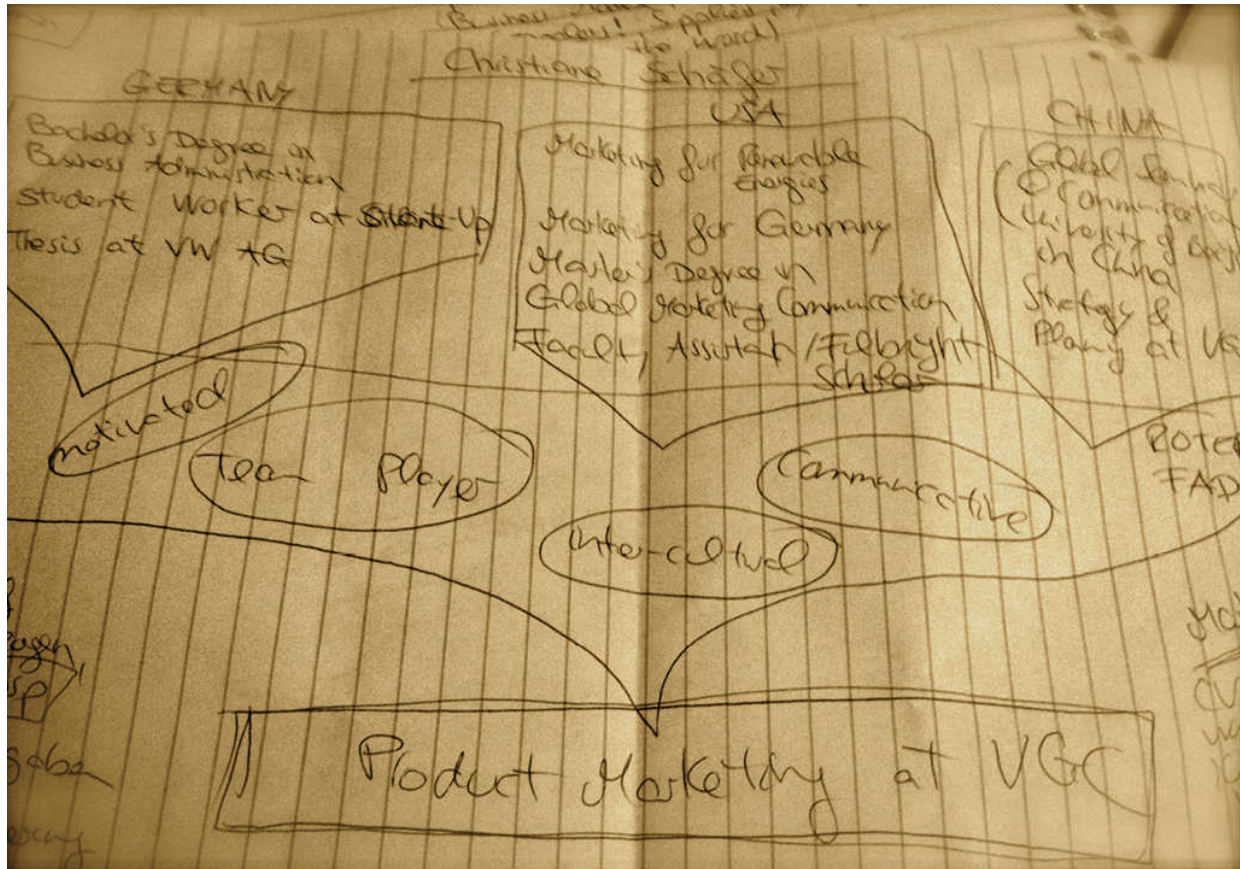 (Business
the word)
Christiane Schäfer
GERMANY
Bachelor's Degree in
Business Administration
Student Worker at Start-Up
Thesis at VW AG
USA
Marketing for Renewable
Energies
Marketing for Germany
Master's Degree in
Global Marketing Communication
Faculty Assistant/Fulbright
Scholar
CHINA
Global
Communication
University of
in China
Strategy &
at
motivated
Team Player
inter-cultural
Communicative
ROTE
FAD
Product Marketing at VGC